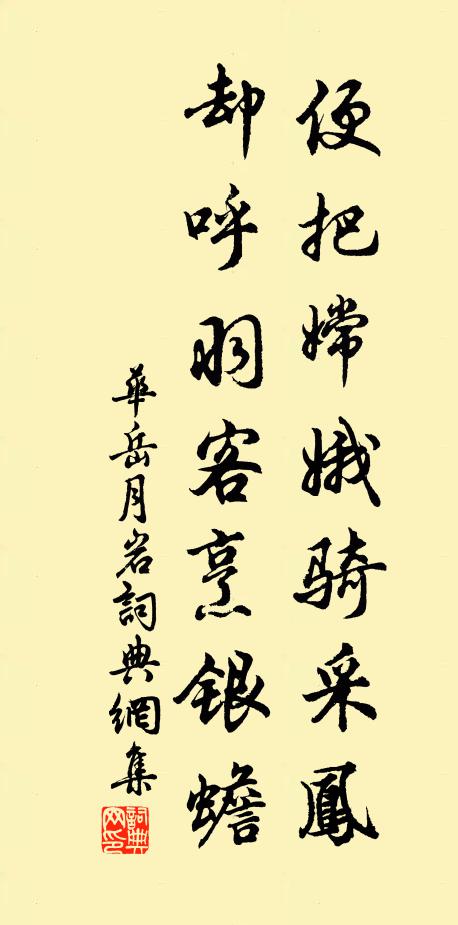 便把嫦娥騎采鳳
却呼羽客烹銀蟾
華岳月岩詞典網集
詞典网印